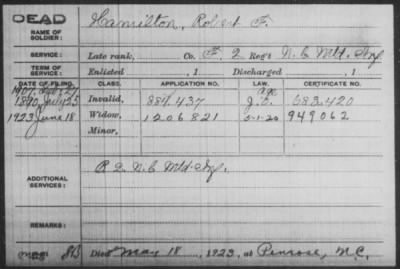 DEAD
NAME OF SOLDIER: Hamilton, Robert F.
SERVICE: Late rank, Co. F. 2 Reg't N.C. Mtd. Inf.
TERM OF SERVICE: Enlisted , 1 Discharged , 1
DATE OF FILING. CLASS. APPLICATION NO. LAW. CERTIFICATE NO.
1907, 27 age
1890, July 25 Invalid, 884,437 683,420
1923 June 18 Widow, 1206821 5-1-20 949062
Minor,
ADDITIONAL SERVICES: 2 N.C. Mtd. Inf.
REMARKS:
Died May 18, 1923, at Penrose, N.C.